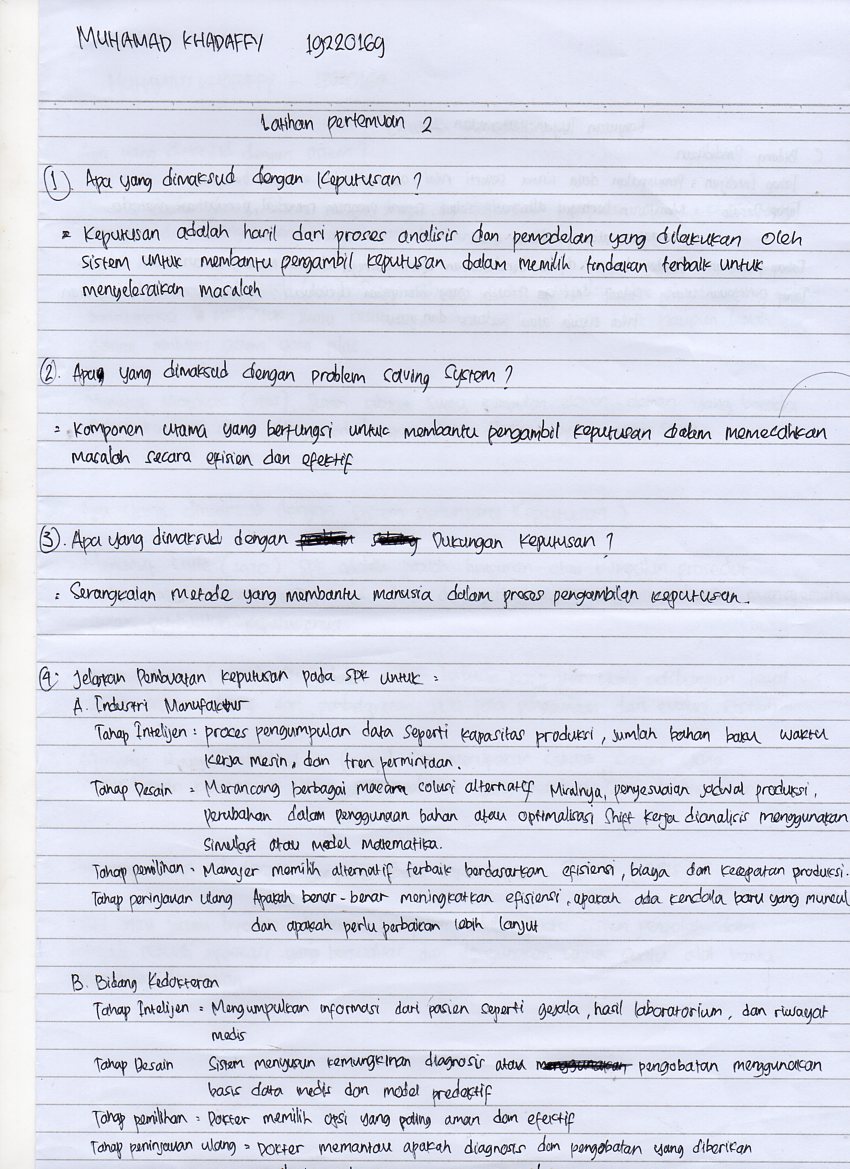 MUHAMAD KHADAFFY 19220169
Latihan pertemuan 2
1. Apa yang dimaksud dengan Keputusan ?
= Keputusan adalah hasil dari proses analisis dan pemodelan yang dilakukan oleh
sistem untuk membantu pengambil keputusan dalam memilih tindakan terbaik untuk
menyelesaikan masalah
2. Apa yang dimaksud dengan problem solving system ?
= Komponen utama yang berfungsi untuk membantu pengambil keputusan dalam memecahkan
masalah secara efisien dan efektif
3. Apa yang dimaksud dengan Dukungan keputusan ?
= Serangkaian metode yang membantu manusia dalam proses pengambilan keputusan.
4. Jelaskan Pembuatan keputusan pada SPK untuk :
A. Industri Manufaktur
Tahap Intelijen = proses pengumpulan data seperti kapasitas produksi, jumlah bahan baku waktu
kerja mesin, dan tren permintaan.
Tahap Desain = Merancang berbagai macam solusi alternatif Misalnya, penyesuaian jadwal produksi,
perubahan dalam penggunaan bahan atau optimalisasi Shift kerja dianalisis menggunakan
simulasi atau model matematika.
Tahap pemilihan = Manajer memilih alternatif terbaik berdasarkan efisiensi, biaya dan kecepatan produksi.
Tahap peninjauan ulang Apakah benar-benar meningkatkan efisiensi, apakah ada kendala baru yang muncul
dan apakah perlu perbaikan lebih lanjut
B. Bidang Kedokteran
Tahap Intelijen = Mengumpulkan informasi dari pasien seperti gejala, hasil laboratorium, dan riwayat
medis
Tahap Desain Sistem menyusun kemungkinan diagnosis atau pengobatan menggunakan
basis data medis dan model prediktif
Tahap pemilihan = Dokter memilih opsi yang paling aman dan efektif
Tahap peninjauan ulang = Dokter memantau apakah diagnosis dan pengobatan yang diberikan